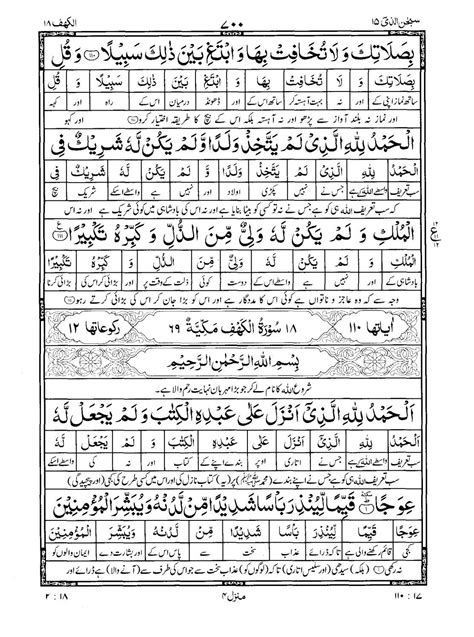 سبحٰن الذیٓ ۱۵ ۷۰۰ الکهف ۱۸
بِصَلَاتِكَ وَ لَا تُخَافِتْ بِهَا وَ ابْتَغِ بَيْنَ ذٰلِكَ سَبِيْلًا ﴿۱۱۰﴾ وَ قُلِ
بِصَلَاتِكَ وَ لَا تُخَافِتْ بِهَا وَ ابْتَغِ بَيْنَ ذٰلِكَ سَبِيْلًا وَ قُلِ
ساتھ نماز اپنی کے اور نہ بہت آہستہ کر ساتھ اس کے اور ڈھونڈ درمیان اس کے راہ اور کہہ
اور نماز نہ بلند آواز سے پڑھو اور نہ آہستہ بلکہ اس کے بیچ کا طریقہ اختیار کرو اور کہو
الْحَمْدُ لِلّٰهِ الَّذِيْ لَمْ يَتَّخِذْ وَلَدًا وَّ لَمْ يَكُنْ لَّهٗ شَرِيْكٌ فِي
الْحَمْدُ لِلّٰهِ الَّذِيْ لَمْ يَتَّخِذْ وَلَدًا وَّ لَمْ يَكُنْ لَّهٗ شَرِيْكٌ فِي
سب تعریف واسطے اللہ کے ہے جس نے نہیں پکڑی اولاد اور نہیں ہے واسطے اسکے شریک بیچ
کہ سب تعریف اللہ ہی کو ہے جس نے نہ تو کسی کو بیٹا بنایا ہے اور نہ اس کی بادشاہی میں کوئی شریک ہے اور نہ اس
الْمُلْكِ وَ لَمْ يَكُنْ لَّهٗ وَلِيٌّ مِّنَ الذُّلِّ وَ كَبِّرْهُ تَكْبِيْرًا ﴿۱۱۱﴾
الْمُلْكِ وَ لَمْ يَكُنْ لَّهٗ وَلِيٌّ مِّنَ الذُّلِّ وَ كَبِّرْهُ تَكْبِيْرًا
بادشاہی کے اور نہیں ہے واسطے اسکے دوست کوئی ذلت کے وقت پر اور بڑائی کر اس کی بڑائی کرنا
وجہ سے کہ وہ عاجز و ناتواں ہے کوئی اس کا مددگار ہے اور اس کو بڑا جان کر اس کی بڑائی کرتے رہو
اٰیاتها ۱۱۰ ۱۸ سُوْرَةُ الْكَهْفِ مَكِّيَّةٌ ۶۹ رکوعاتها ۱۲
بِسْمِ اللّٰهِ الرَّحْمٰنِ الرَّحِيْمِ
شروع اللہ کا نام لے کر جو بڑا مہربان نہایت رحم والا ہے۔
اَلْحَمْدُ لِلّٰهِ الَّذِيْٓ اَنْزَلَ عَلٰى عَبْدِهِ الْكِتٰبَ وَ لَمْ يَجْعَلْ لَّهٗ
اَلْحَمْدُ لِلّٰهِ الَّذِيْٓ اَنْزَلَ عَلٰى عَبْدِهِ الْكِتٰبَ وَ لَمْ يَجْعَلْ لَّهٗ
سب تعریف واسطے اللہ کے ہے جس نے اتاری اوپر بندے اپنے کے کتاب اور نہ کی واسطے اسکے
سب تعریف اللہ ہی کو ہے جس نے اپنے بندے (محمد) پر (یہ) کتاب نازل کی اور اس میں کسی طرح کی کجی (اور پیچیدگی)
عِوَجًا ﴿۱﴾ قَيِّمًا لِّيُنْذِرَ بَاْسًا شَدِيْدًا مِّنْ لَّدُنْهُ وَ يُبَشِّرَ الْمُؤْمِنِيْنَ
عِوَجًا قَيِّمًا لِّيُنْذِرَ بَاْسًا شَدِيْدًا مِّنْ لَّدُنْهُ وَ يُبَشِّرَ الْمُؤْمِنِيْنَ
کجی قائم رکھنے والی ہے تاکہ ڈرائے عذاب سخت سے پاس اس کے اور بشارت دے ایمان والوں کو
نہ رکھی (بلکہ) سیدھی (اور سلیس اتاری) تاکہ (لوگوں کو) عذاب سخت سے جو اس کی طرف سے (آنے والا) ہے ڈرائے اور
۱۷ : ۱۱۰ منزل ۴ ۱۸ : ۲